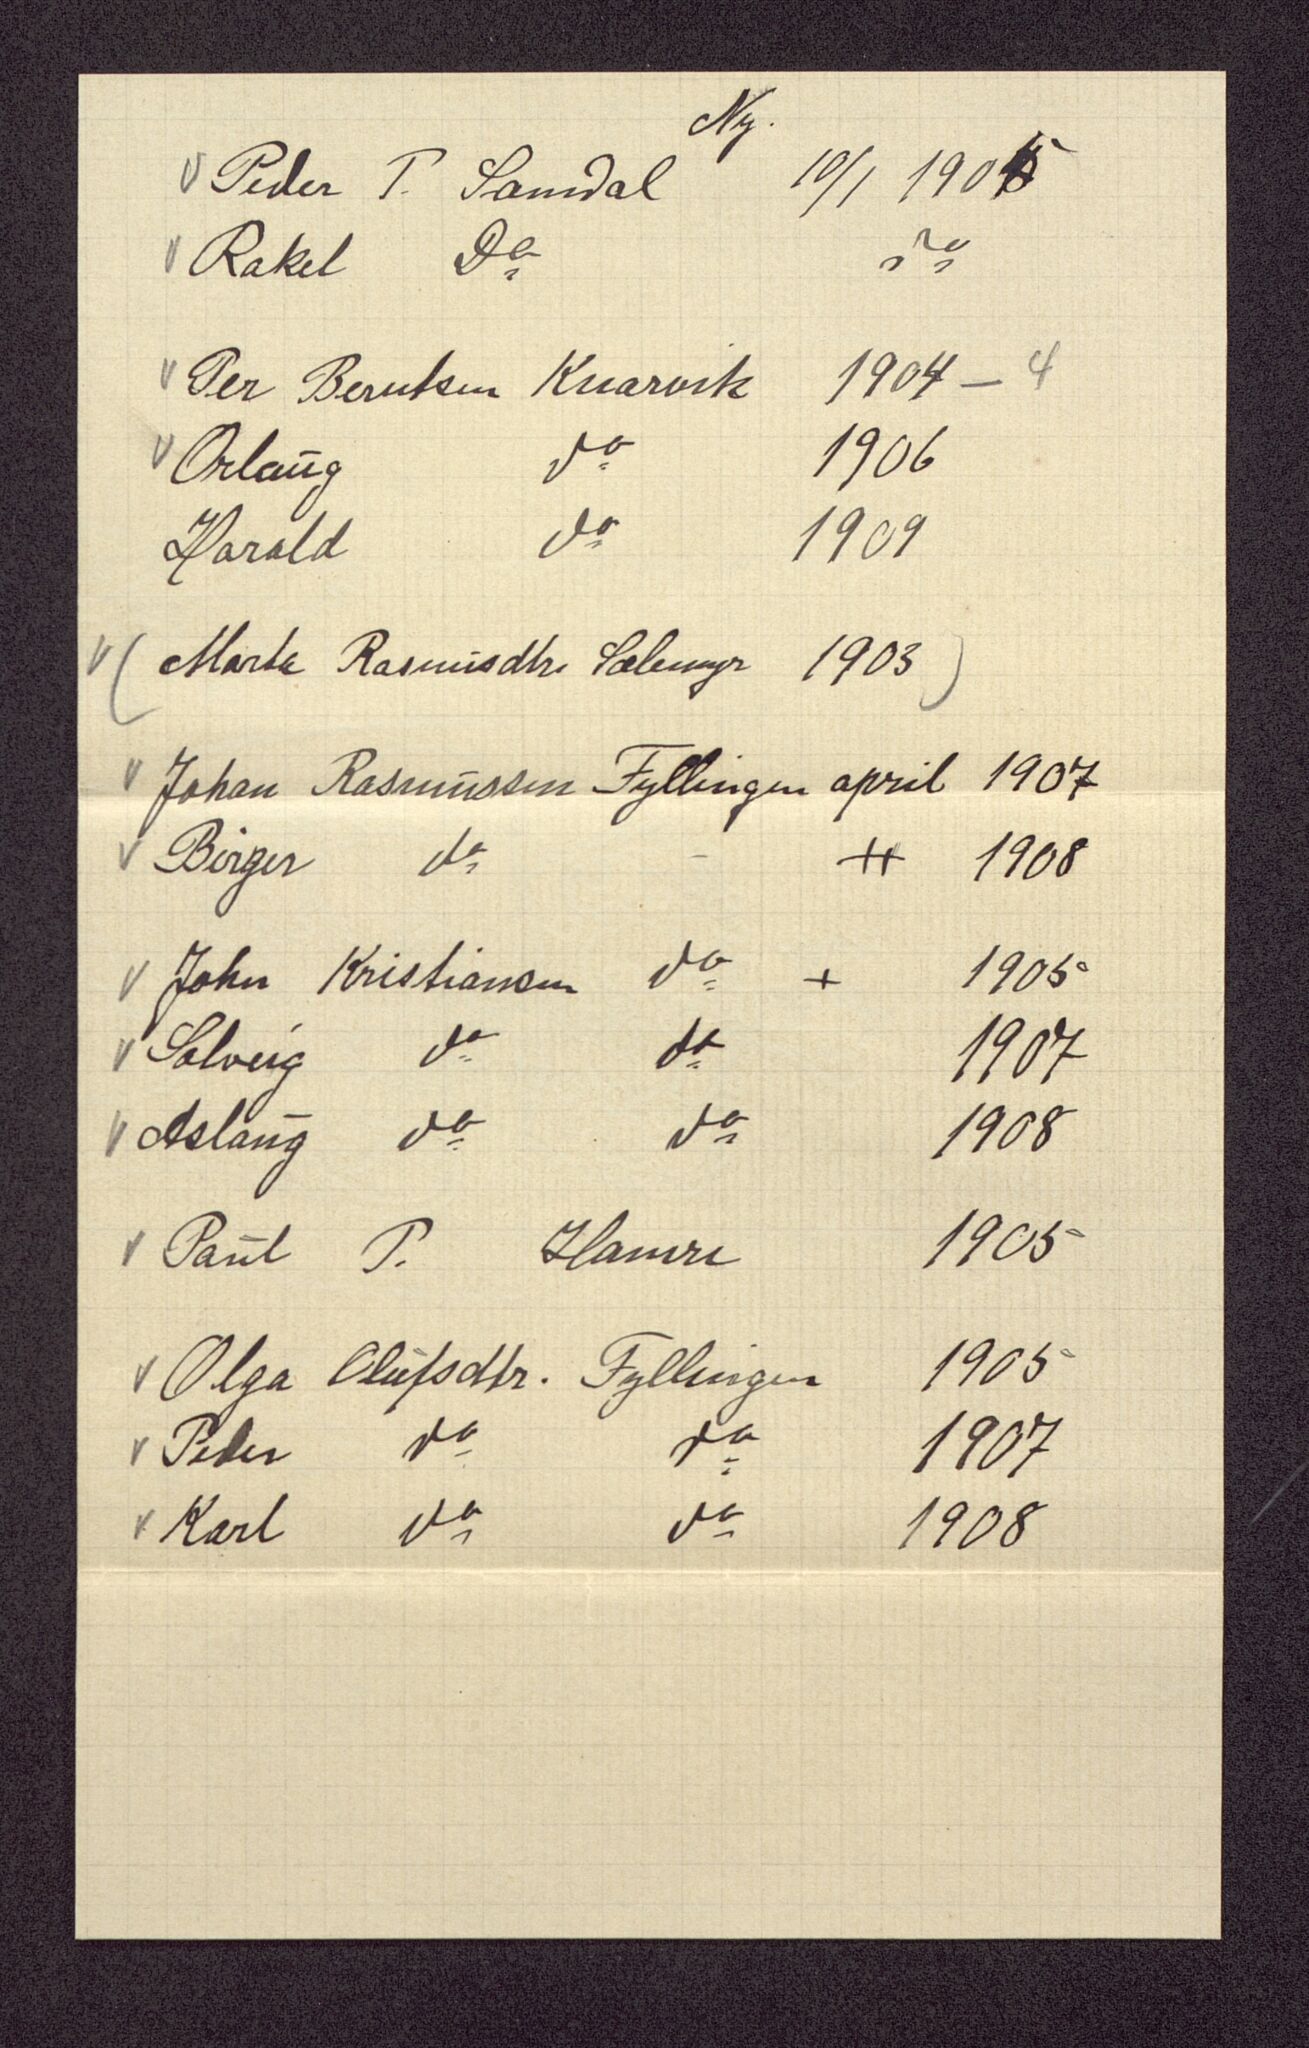 Ny.
v Peder T. Samdal 10/1 1905
v Rakel Do do
v Per Berntsen Knarvik 1904 — 4
v Orlaug do 1906
Harald do 1909
v (Marta Rasmusdtr. Sælemyr 1903)
v Johan Rasmussen Fyllingen april 1907
v Birger do - ++ 1908
v John Kristiansen do + 1905
v Solveig do do 1907
v Aslaug do do 1908
v Paul T. Hamre 1905
v Olga Olufsdtr. Fyllingen 1905
v Peder do do 1907
v Karl do do 1908